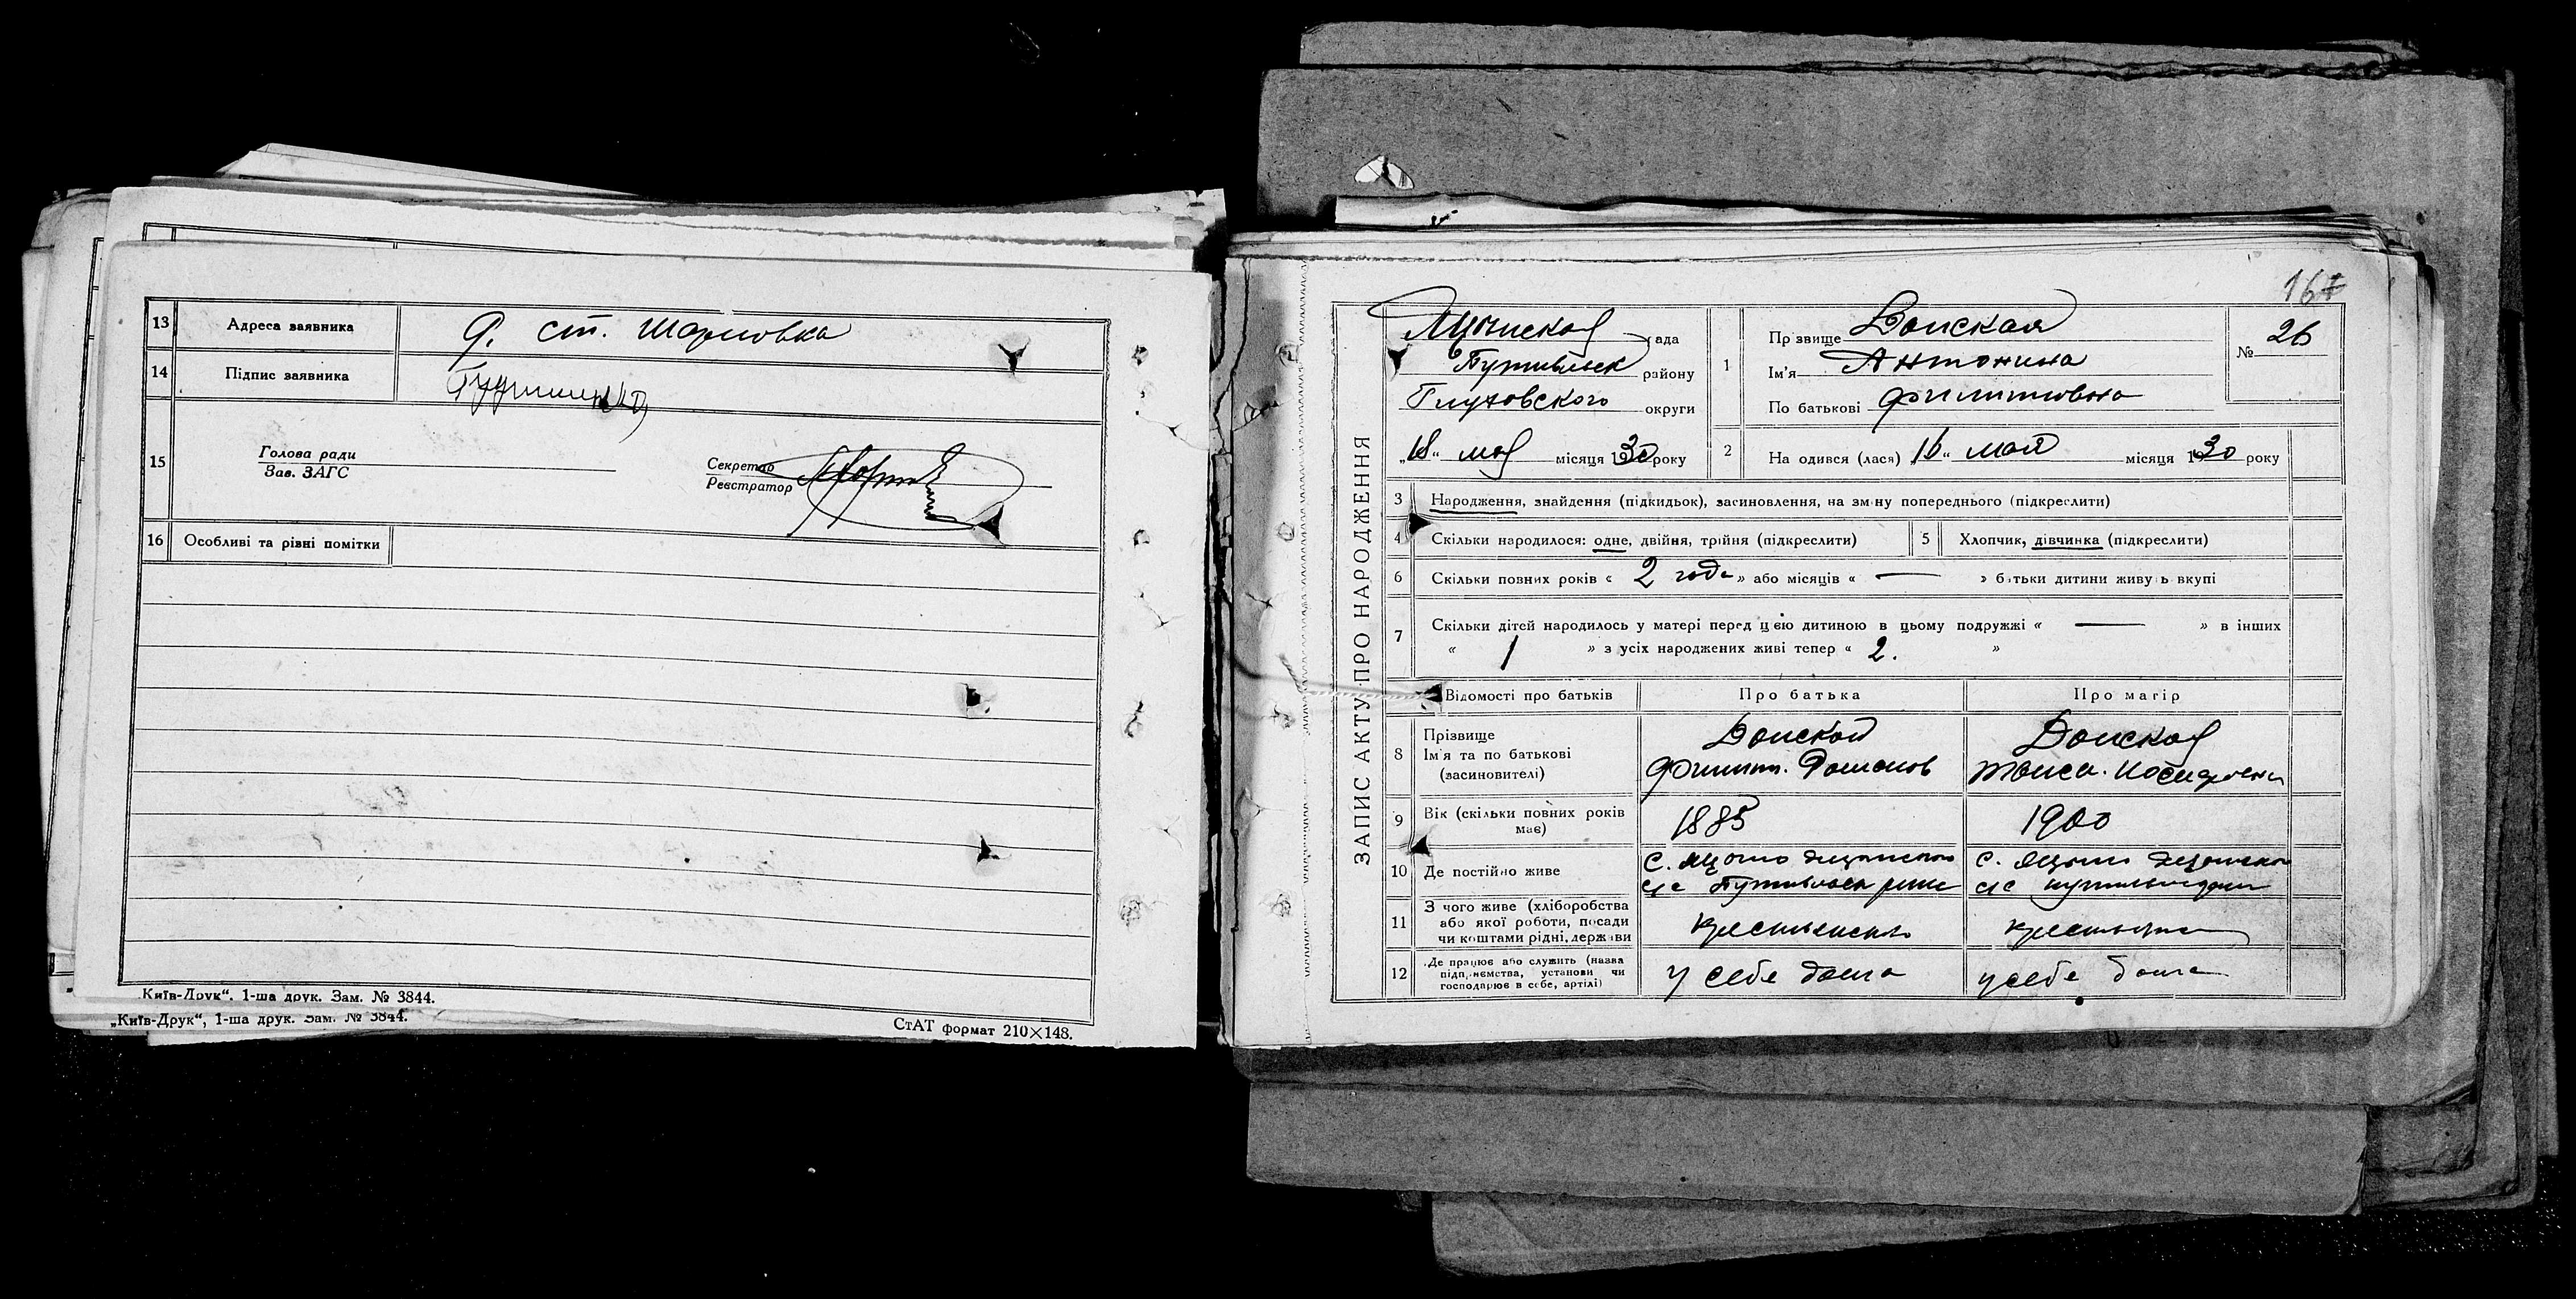 13 Адреса заявника д. ст. Шарповка
14 Підпис заявника
15 Голова ради
Зав. ЗАГС
Секретар
Реєстратор
16 Особливі та рівні помітки
„Київ-Друк“, 1-ша друк. Зам. № 3844.
„Київ-Друк“, 1-ша друк. Зам. № 3844.
СтАТ формат 210×148.
167
ЗАПИС АКТУ ПРО НАРОДЖЕННЯ
Яцынская рада
Путивльск району
Глуховского округи
„18“ мая місяця 1930 року
1 Прізвище Донская
Ім'я Антонина
По батькові Филипповна
№ 26
2 Народився (лася) „16“ мая місяця 1930 року
3 Народження, знайдення (підкидьок), засиновлення, на зміну попереднього (підкреслити)
4 Скільки народилося: одне, двійня, трійня (підкреслити)
5 Хлопчик, дівчинка (підкреслити)
6 Скільки повних років « 2 года » або місяців « — » батьки дитини живуть вкупі
7 Скільки дітей народилось у матері перед цією дитиною в цьому подружжі « — » в інших
« 1 » з усіх народжених живі тепер « 2. »
Відомості про батьків Про батька Про матір
8 Прізвище
Ім'я та по батькові
(засиновителі)
Донской
Филипп. Романов
Донская
9 Вік (скільки повних років
має)
1885
1900
10 Де постійно живе
с. Яцыно Яцынского
с/с Путивльск
с. Яцыно Яцынского
с/с
11 З чого живе (хліборобства
або якої роботи, посади
чи коштами рідні, держави
12 Де працює або служить (назва
підприємства, установи чи
господарює в себе, артілі)
у себе дома
у себе дома